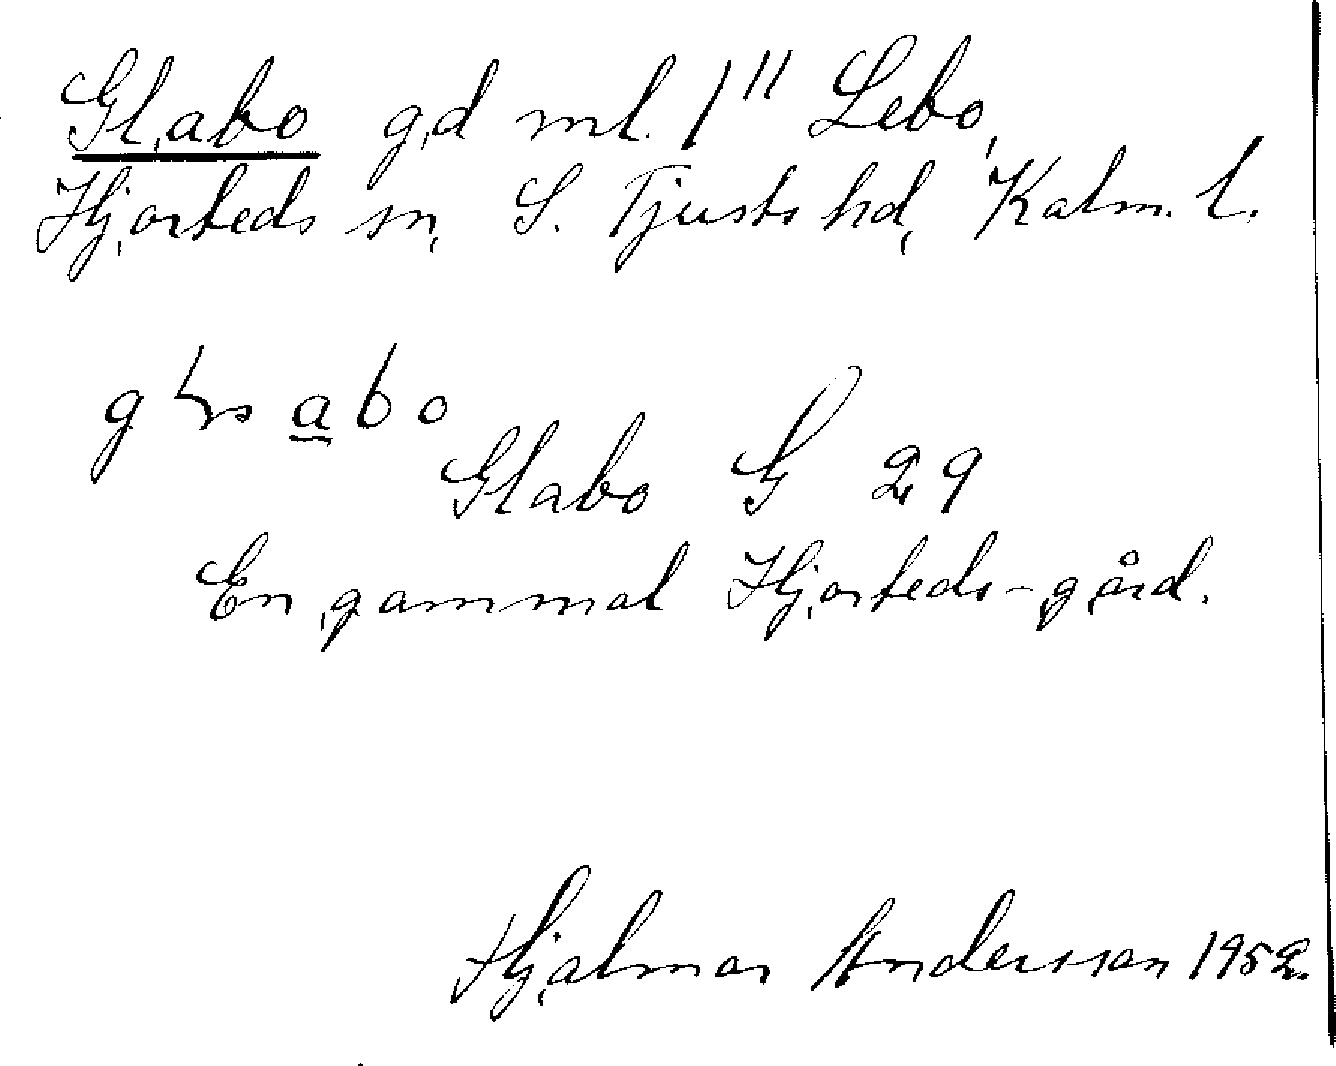 Glabo gd ml. 1" Lebo,
Hjorteds sn, S. Tjusts hd, Kalm. l.
abo
Glabo G 29
En gammal Hjorteds-gård.
Hjalmar Andersson 1952.